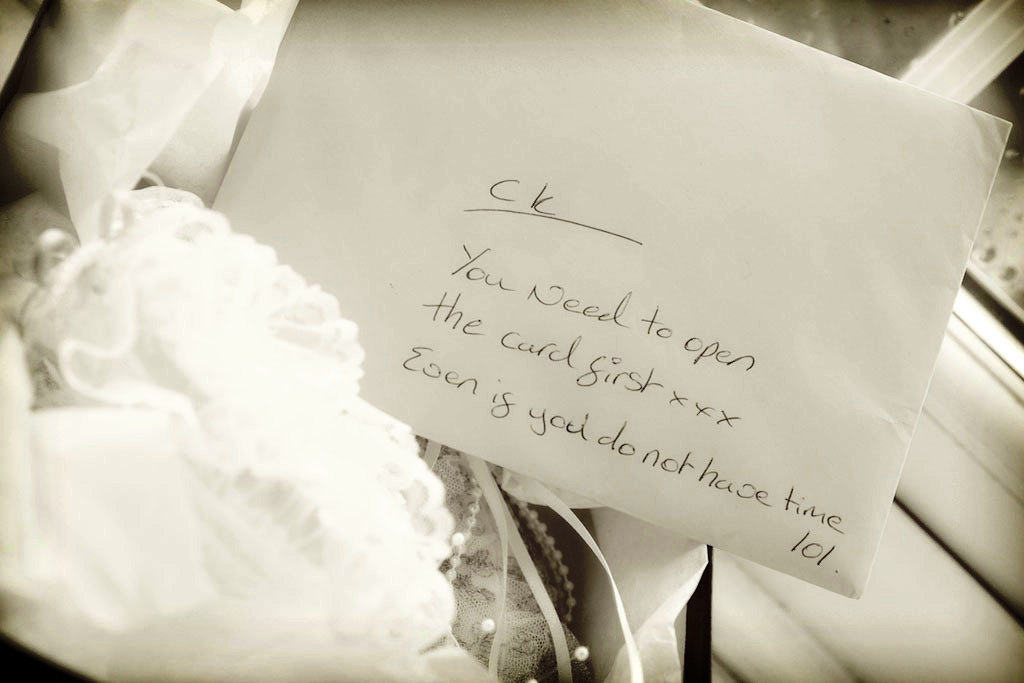 CK
You Need to open
the card first xxx
Even if you do not have time
lol.